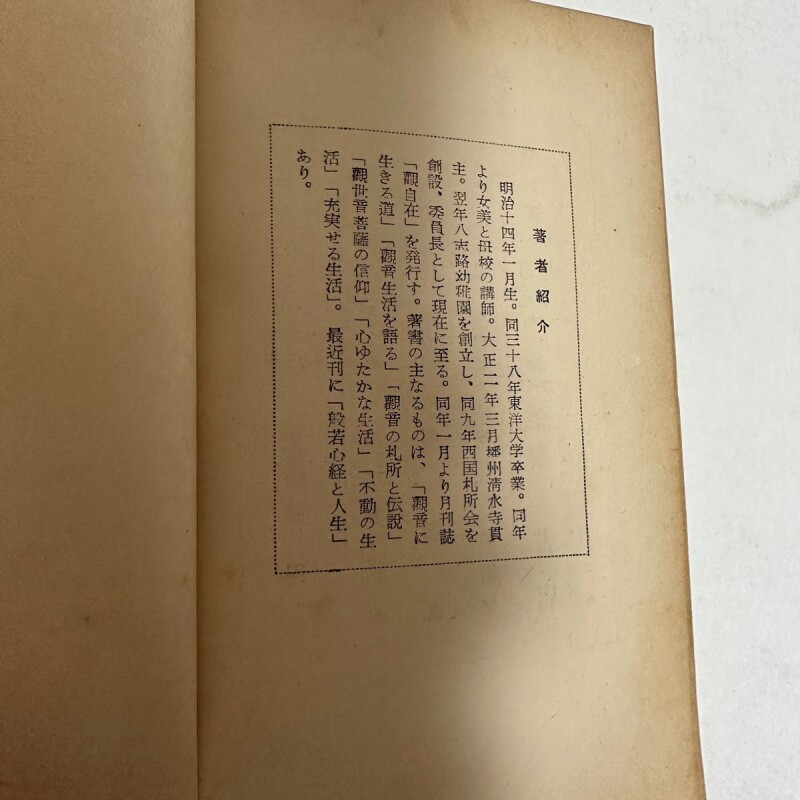 著者紹介
明治十四年一月生。同三十八年東洋大学卒業。同年
より女美と母校の講師。大正二年三月播州清水寺貫
主。翌年八志路幼稚園を創立し、同九年西国札所会を
創設、委員長として現在に至る。同年一月より月刊誌
「觀自在」を発行す。著書の主なるものは、「觀音に
生きる道」「觀音生活を語る」「觀音の札所と伝説」
「觀世音菩薩の信仰」「心ゆたかな生活」「不動の生
活」「充実せる生活」。最近刊に「般若心経と人生」
あり。